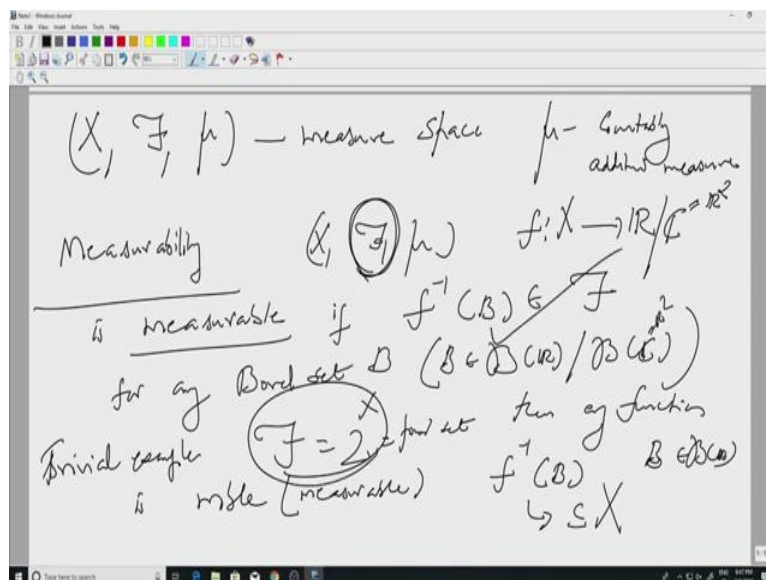 Note1 - Windows Journal
File Edit View Insert Actions Tools Help
(X, ℱ, μ) — measure space μ - Countably
additive measure
Measurability (X, ℱ, μ) f: X → ℝ/ℂ = ℝ²
is measurable if f⁻¹(B) ∈ ℱ
for any Borel set B (B ∈ 𝓑(ℝ) / 𝓑(ℂ) = ℝ²)
Trivial example ℱ = 2^X = power set then any function
is mble (measurable) f⁻¹(B) B ∈ 𝓑(ℝ)
↳ ⊆ X
Type here to search